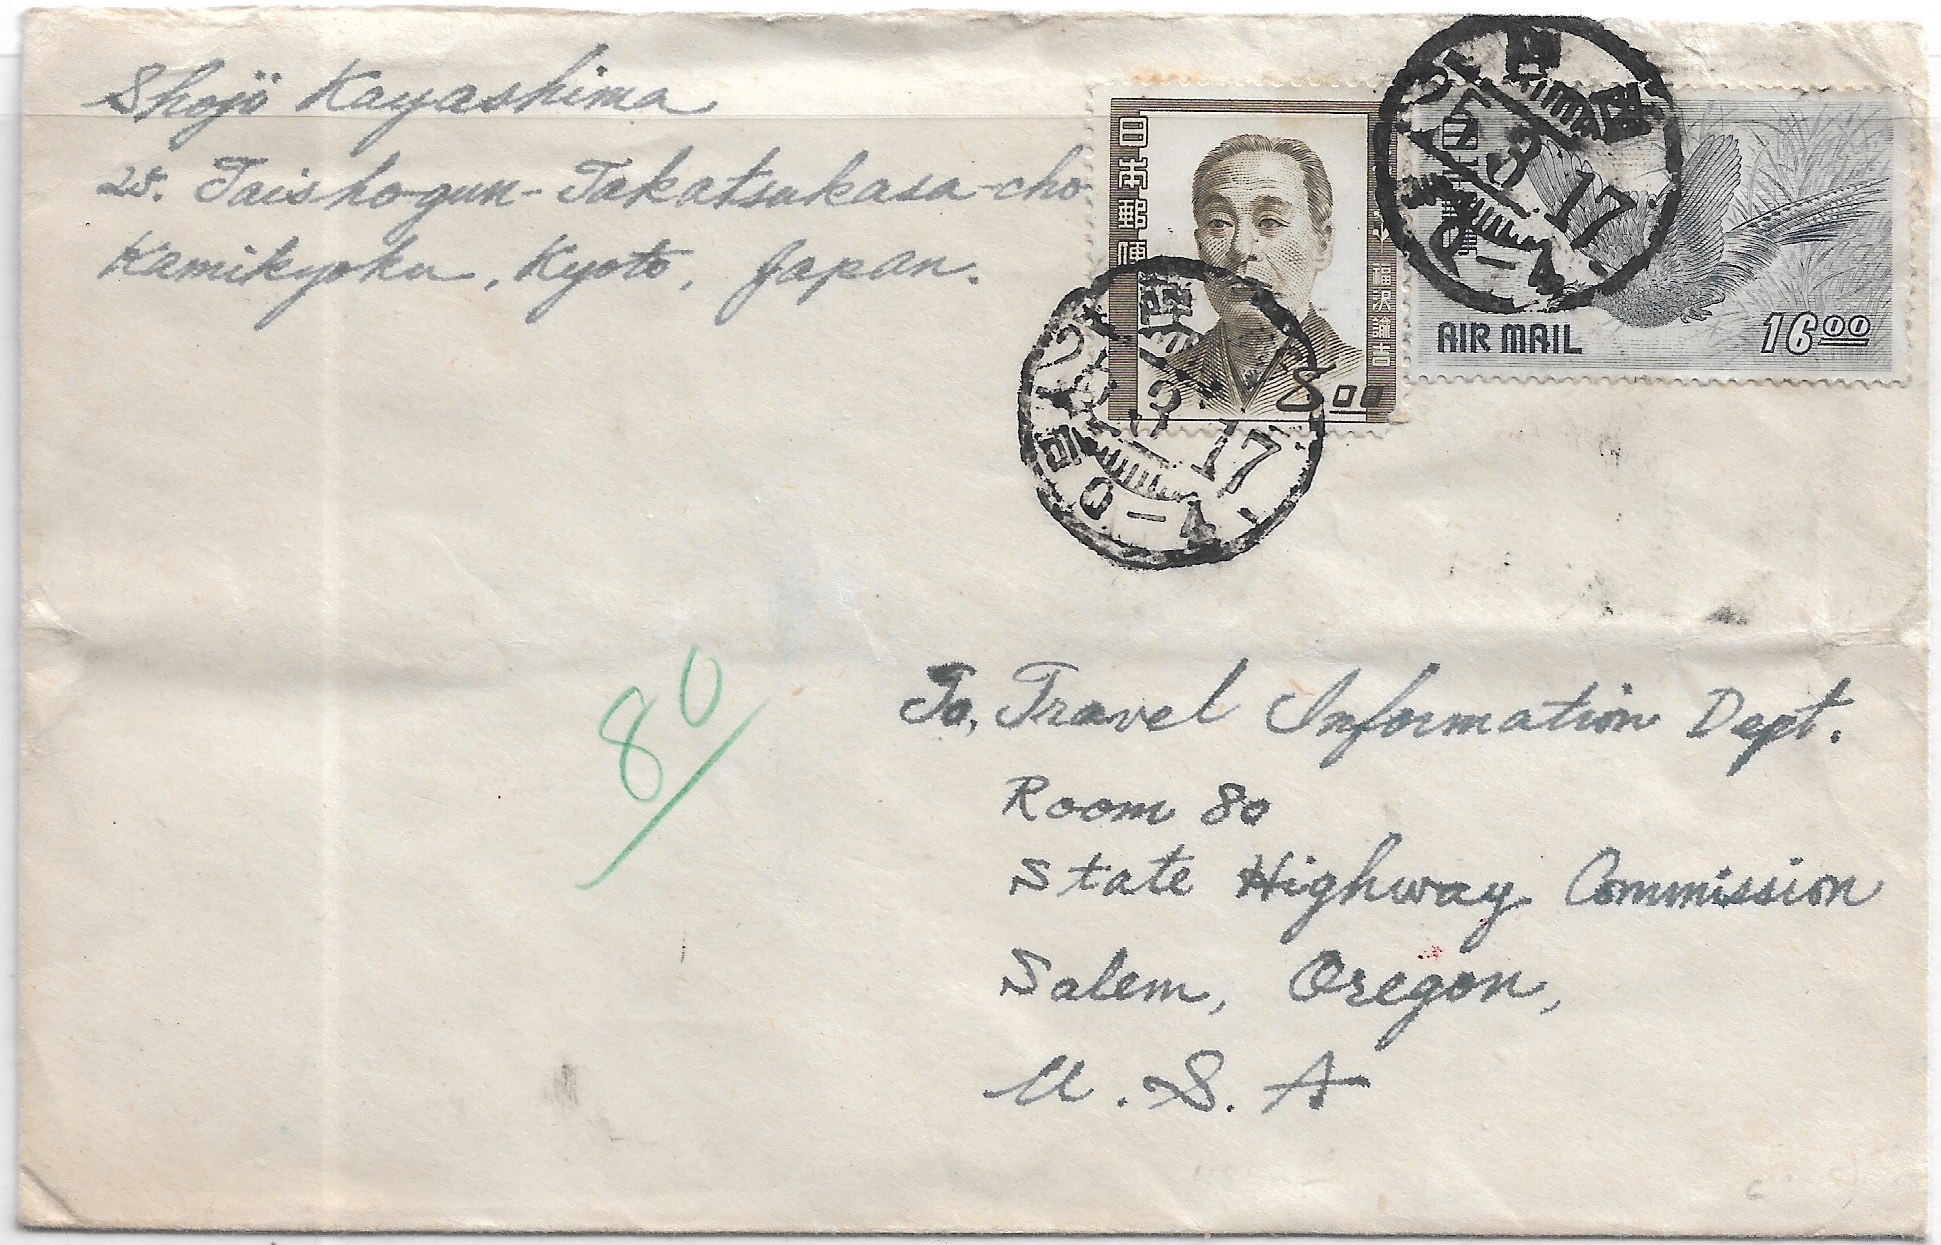 Shoji Kayashima
25. Taisho-gun-Takatsukasa-cho
Kamikyoku, Kyoto, Japan.
日本郵便
福沢諭吉
8.00
AIR MAIL
16.00
3.17
0-4
3.17
0-4
80
To, Travel Information Dept.
Room 80
State Highway Commission
Salem, Oregon,
U.S.A